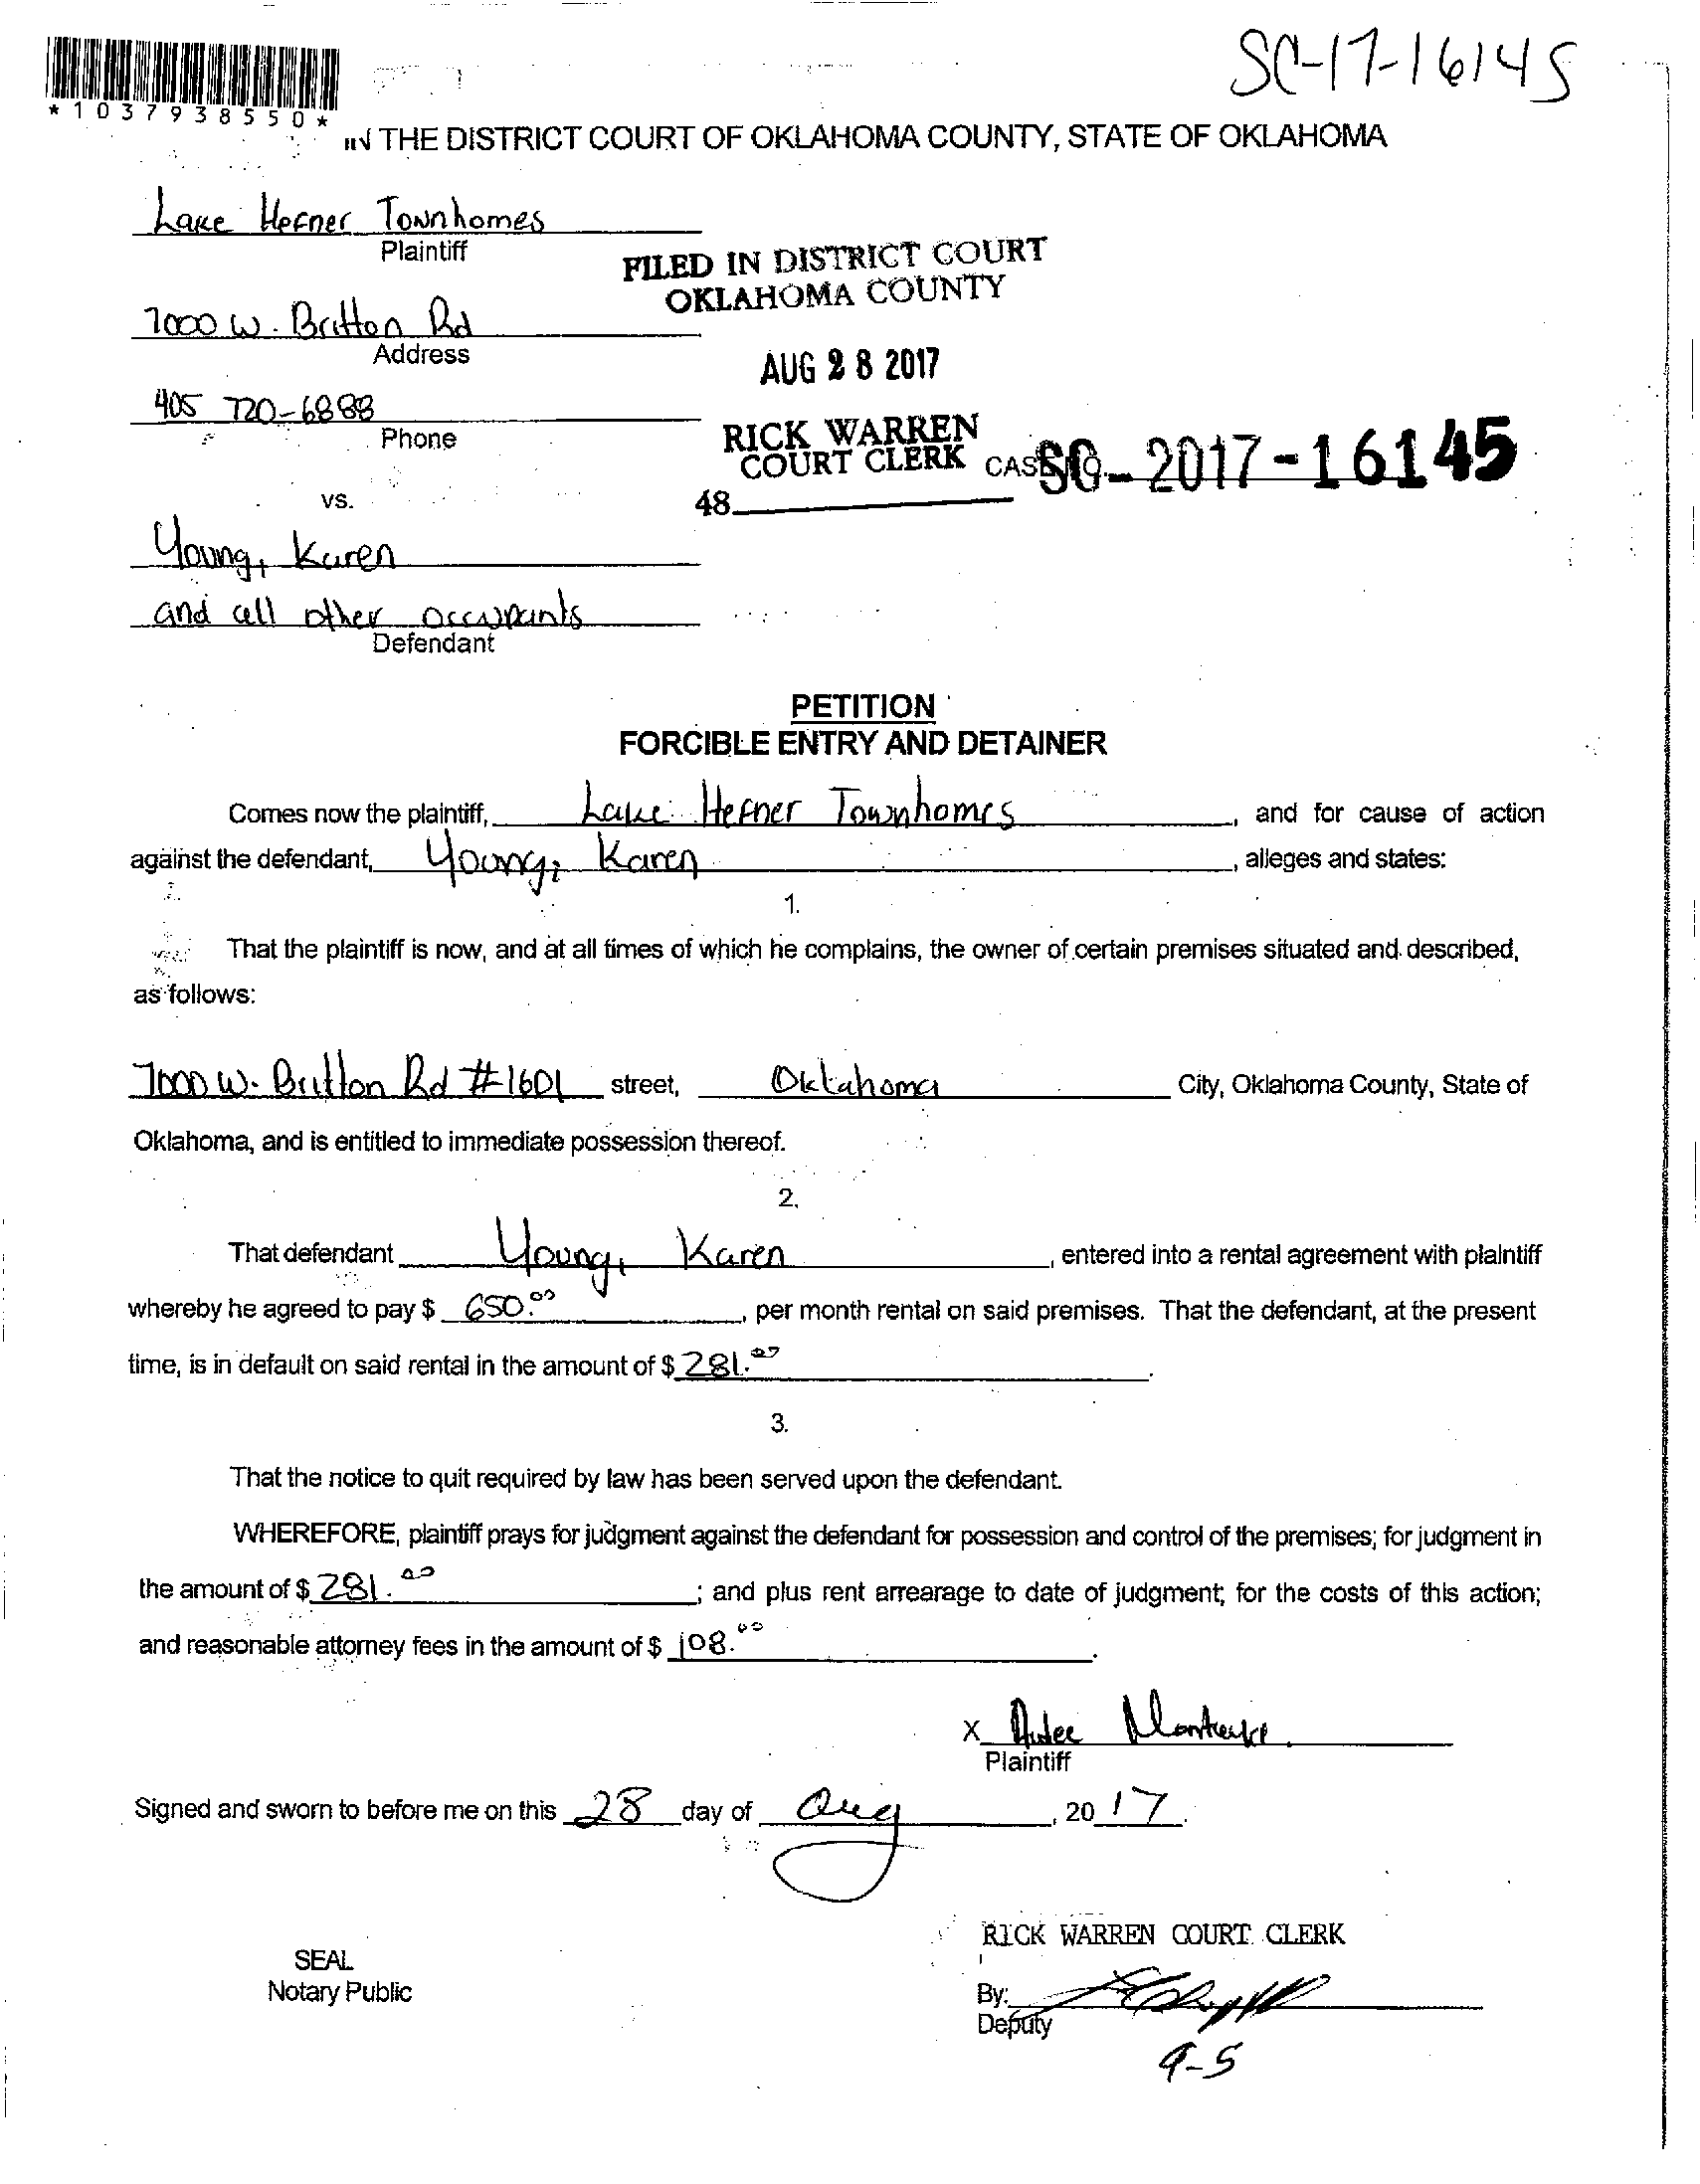 SC-17-16145
*1037938550*
IN THE DISTRICT COURT OF OKLAHOMA COUNTY, STATE OF OKLAHOMA
Lake Hefner Townhomes
Plaintiff
FILED IN DISTRICT COURT
OKLAHOMA COUNTY
7000 W. Britton Rd
Address
AUG 28 2017
405 720-6888
Phone
RICK WARREN
COURT CLERK
CASE NO. SC-2017-16145
48
vs.
Young, Karen
and all other occupants
Defendant
PETITION
FORCIBLE ENTRY AND DETAINER
Comes now the plaintiff, Lake Hefner Townhomes, and for cause of action
against the defendant, Young, Karen, alleges and states:
1.
That the plaintiff is now, and at all times of which he complains, the owner of certain premises situated and described,
as follows:
7000 W. Britton Rd #1601 street, Oklahoma City, Oklahoma County, State of
Oklahoma, and is entitled to immediate possession thereof.
2.
That defendant Young, Karen, entered into a rental agreement with plaintiff
whereby he agreed to pay $ 650.00, per month rental on said premises. That the defendant, at the present
time, is in default on said rental in the amount of $ 281.00.
3.
That the notice to quit required by law has been served upon the defendant.
WHEREFORE, plaintiff prays for judgment against the defendant for possession and control of the premises; for judgment in
the amount of $ 281.00; and plus rent arrearage to date of judgment; for the costs of this action;
and reasonable attorney fees in the amount of $ 108.00.
X
Plaintiff
Signed and sworn to before me on this 28 day of Aug, 2017.
RICK WARREN COURT CLERK
SEAL
Notary Public
By:
Deputy
9-5